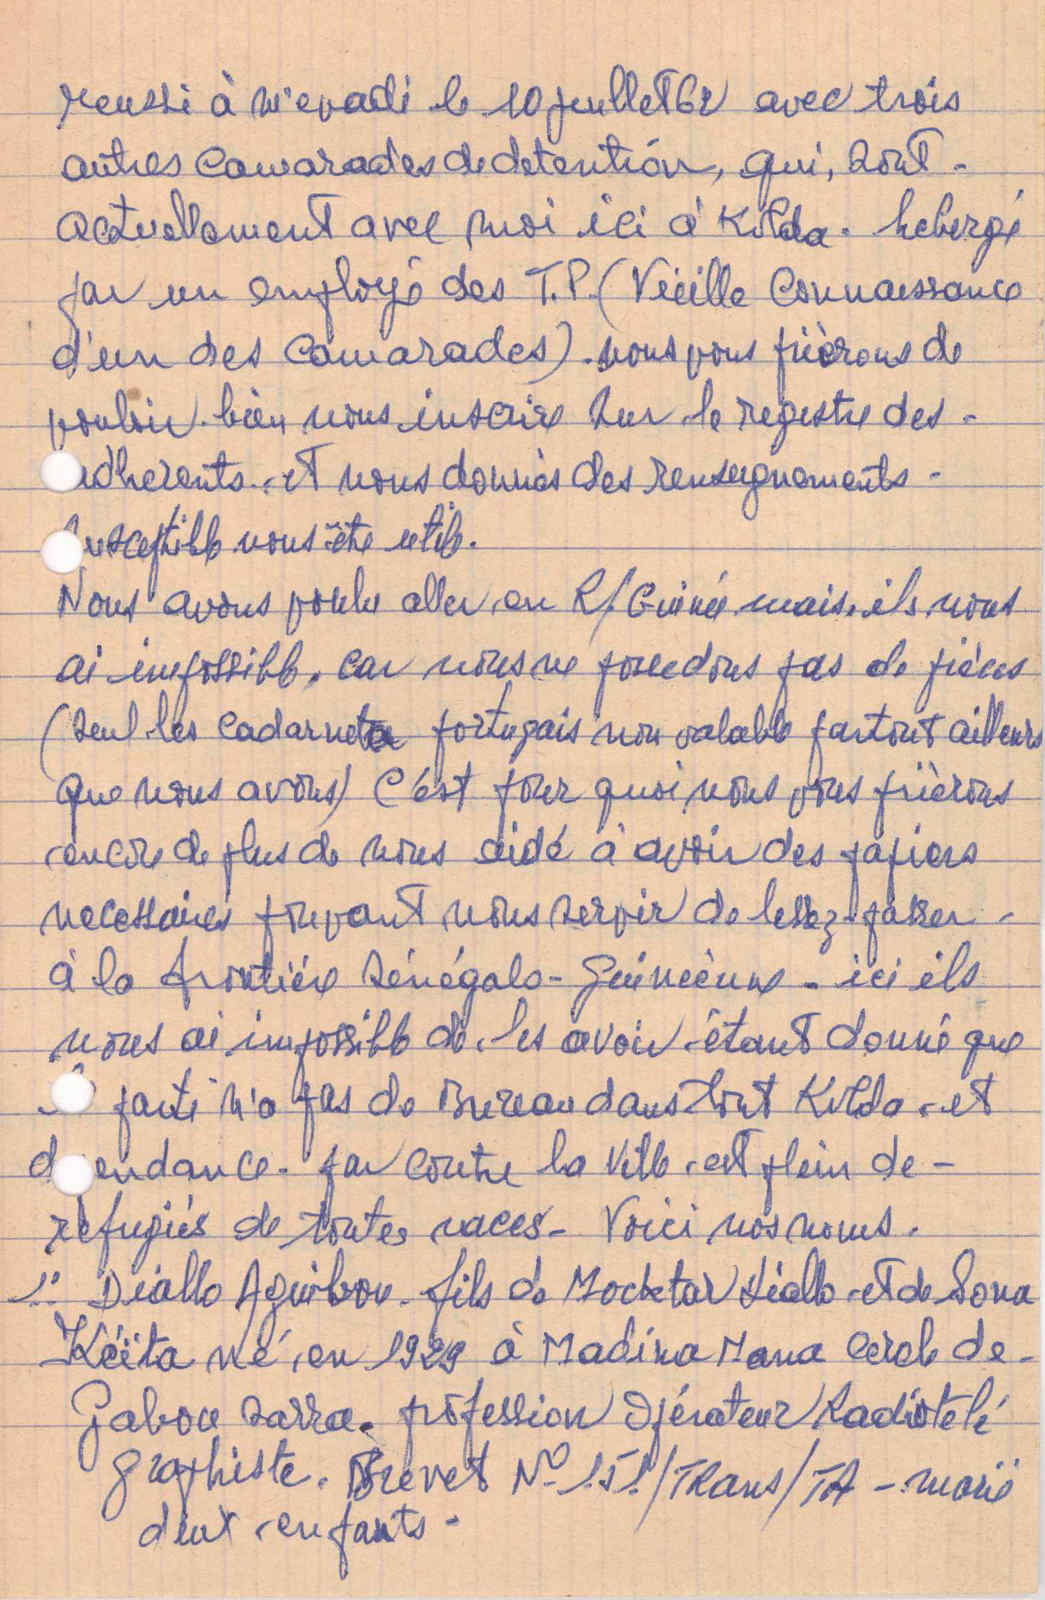 reussi à m'evadé le 10 juillet 62 avec trois
autres camarades de detention, qui, sont -
actuellement avec moi ici à Kolda. hebergé
par un employé des T.P. (Vieille connaissance
d'un des camarades). nous vous prièrons de
vouloir bien nous inscrire sur le registre des -
adherents. et nous donnés des renseignements -
susceptible nous être utile.
Nous avons voulu aller en R/Guinée mais, ils nous
ai impossible, car nous ne possedons pas de pièces
(seul les cadarneta portugais non valable partout ailleurs
que nous avons) C'est pour quoi nous vous prièrons
encore de plus de nous aidé à avoir des papiers
necessaires pouvant nous servir de lessez-passer -
à la frontière Sénégalo-Guinéenne. ici ils
nous ai impossible de les avoir étant donné que
parti n'a pas de Bureau dans tout Kolda et
d endance. par contre la ville est plein de -
refugiés de toutes races - Voici nos noms.
1: Diallo Aguibou. fils de Mocktar Diallo et de Sona
Kéïta né en 1929 à Madina Mana cercle de -
Gabou Sarra. profession Opérateur Radiotelé
graphiste. Brevet N° 151/TRans/TA - marié
deux enfants -